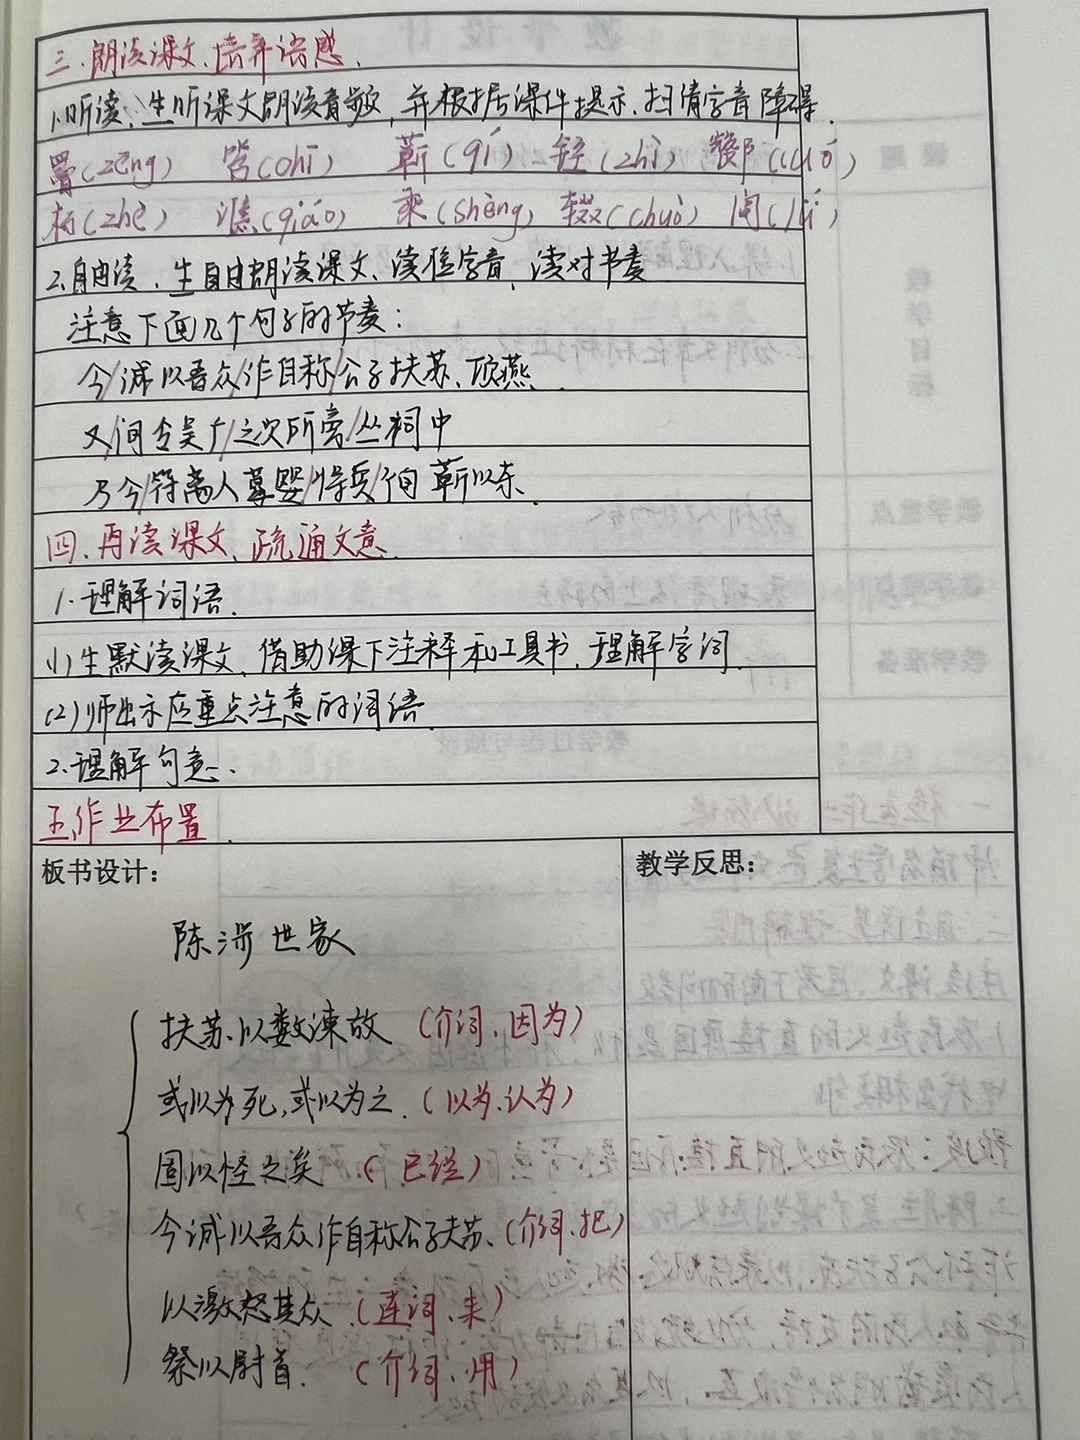 三.朗读课文、培养语感.
1.听读:生听课文朗读音频,并根据课件提示.扫清字音障碍.
罾(zēng) 笞(chī) 蕲(qí) 铚(zhì) 酂(cuó)
柘(zhè) 谯(qiáo) 乘(shèng) 辍(chuò) 闾(lǘ)
2.自由读.生自由朗读课文、读准字音、读对节奏
注意下面几个句子的节奏:
今/诚以吾众/诈自称/公子扶苏、项燕.
又/间令吴广/之次所旁/丛祠中
乃令/符离人葛婴/将兵/徇蕲以东.
四.再读课文、疏通文意.
1.理解词语.
(1)生默读课文,借助课下注释和工具书,理解字词.
(2)师出示应重点注意的词语
2.理解句意.
五.作业布置.
板书设计:
陈涉世家
扶苏以数谏故 (介词.因为)
或以为死,或以为亡.(以为.认为)
固以怪之矣 (已经)
今诚以吾众诈自称公子扶苏、(介词.把)
以激怒其众 (连词.来)
祭以尉首. (介词.用)
教学反思: